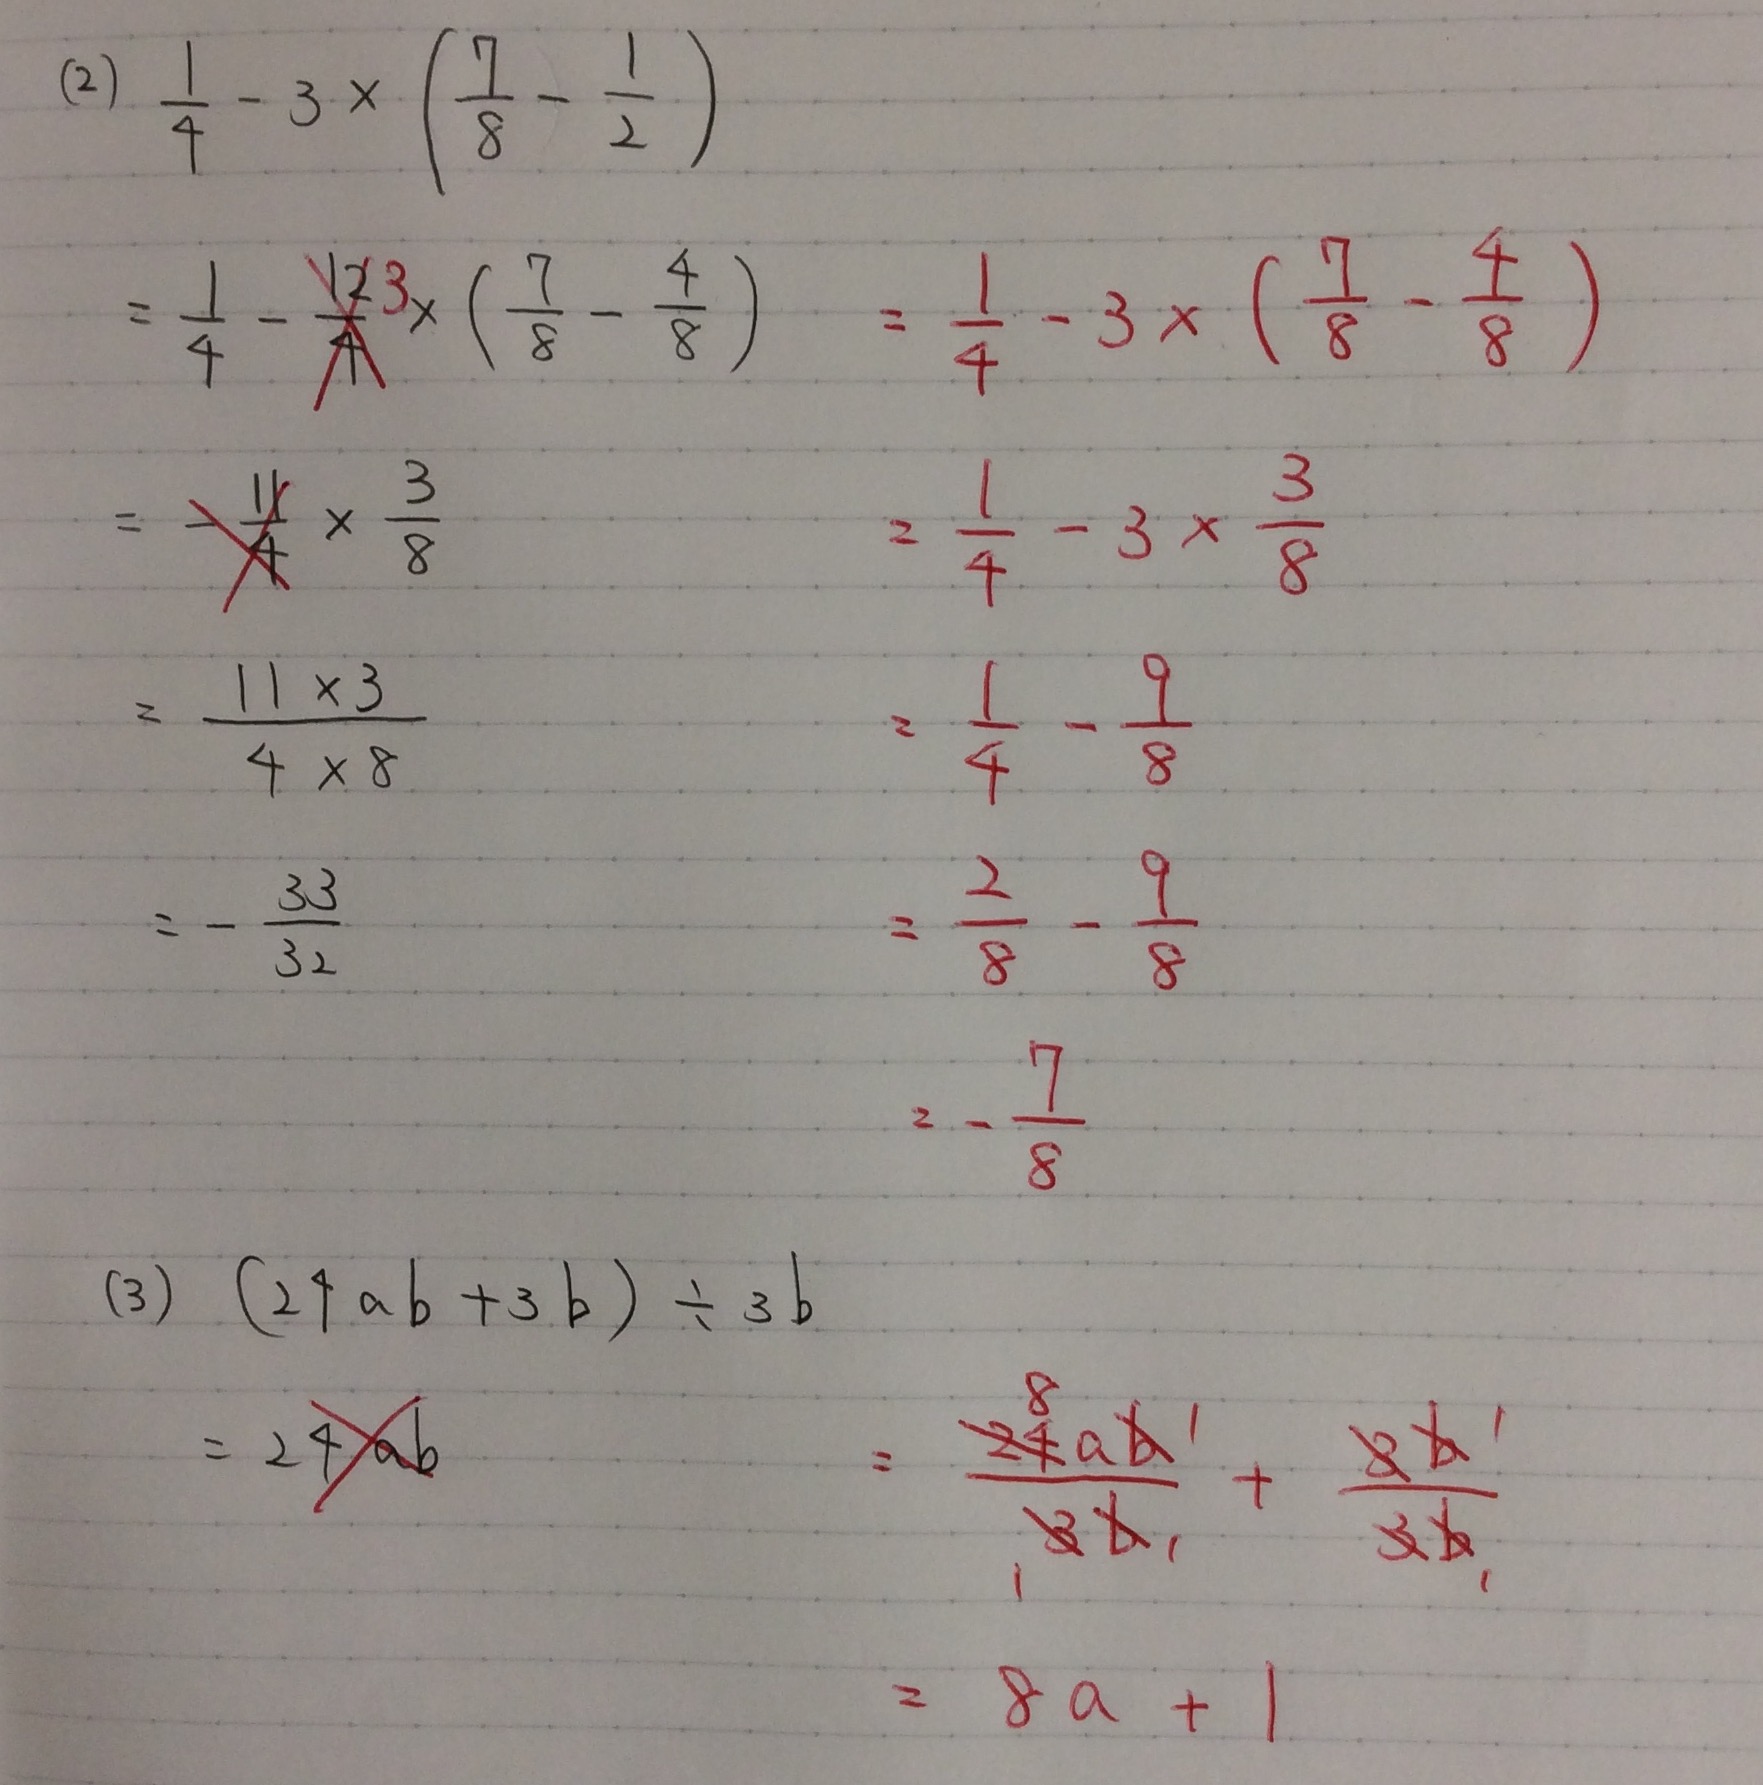 (2) 1/4 - 3 × (7/8 - 1/2)
= 1/4 - 12/4 3 × (7/8 - 4/8)
= 1/4 - 3 × (7/8 - 4/8)
= - 11/4 × 3/8
= 1/4 - 3 × 3/8
= 11 × 3 / 4 × 8
= 1/4 - 9/8
= - 33/32
= 2/8 - 9/8
= - 7/8
(3) (24ab + 3b) ÷ 3b
= 24ab
8
= 24ab 1 / 1 3b 1 + 3b 1 / 3b 1
= 8a + 1